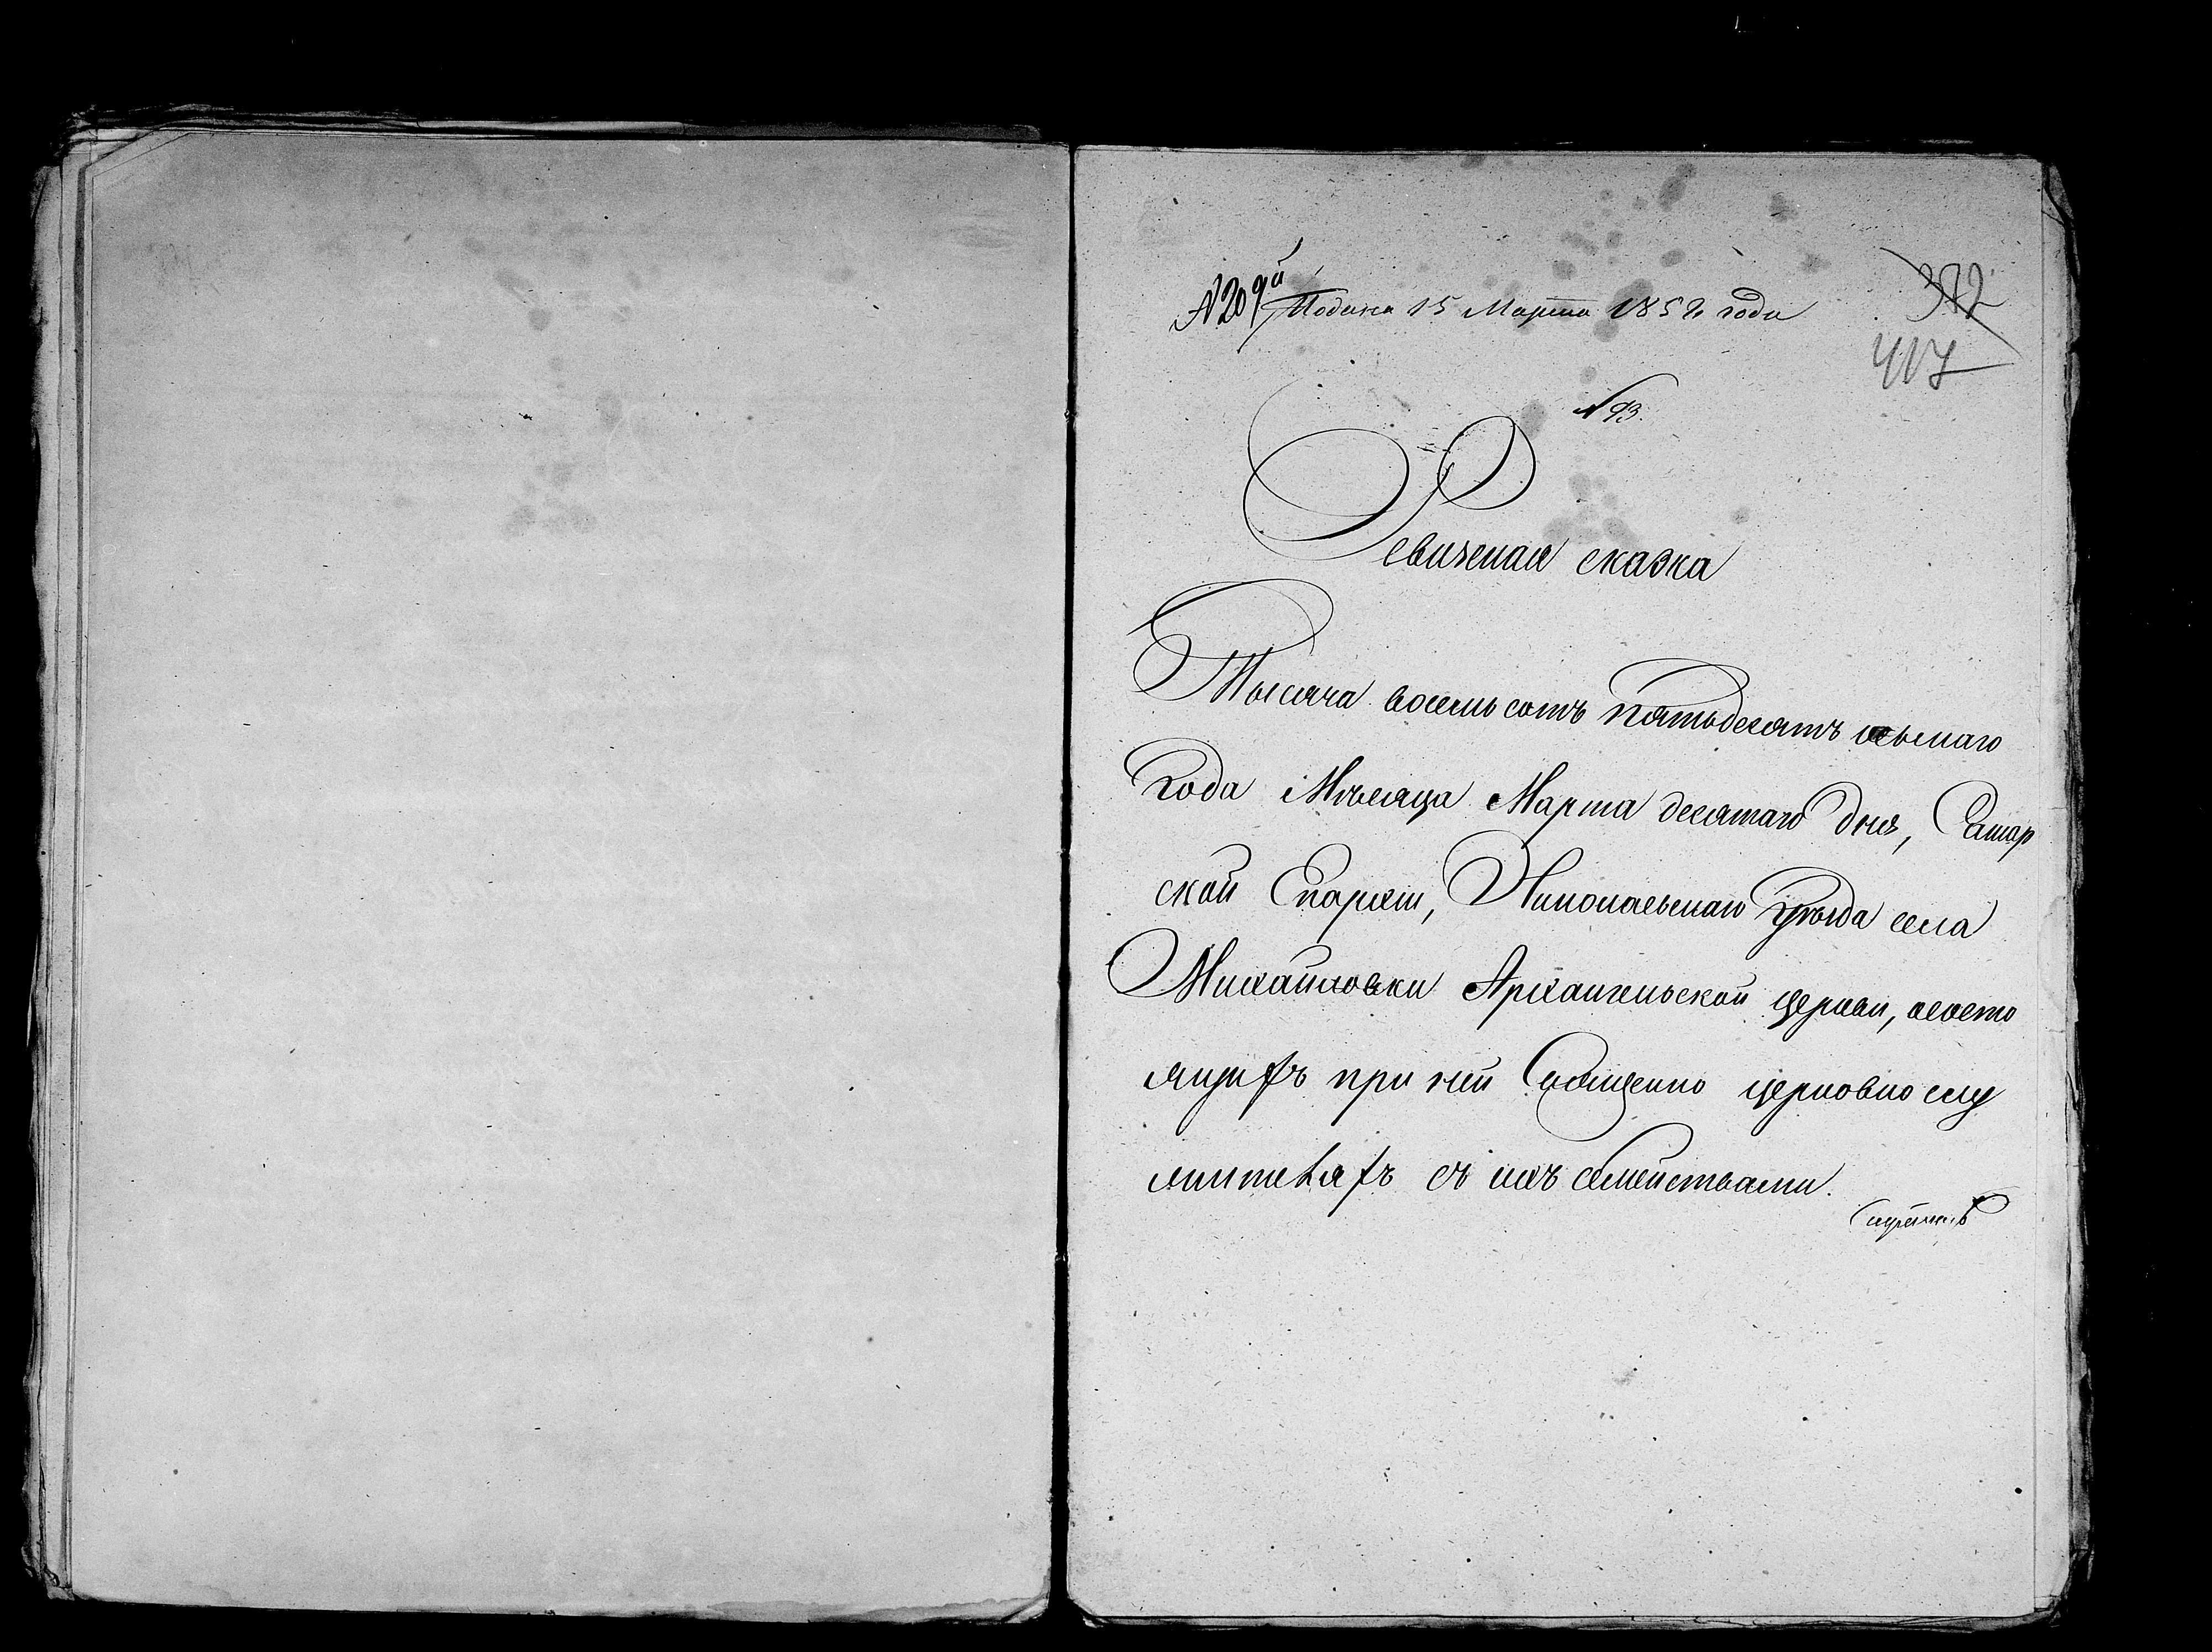 № 209й Подана 15 Марта 1858 года
372
417
№ 93.
Ревижская сказка
Тысяча восемьсотъ пятьдесятъ осьмаго
года Мѣсяца Марта десятаго дня, Самар
ской Епархiи, Николаевскаго уѣзда села
Михайловки Архангельской церкви, ососто
ящихъ при ней Священно церковно слу
жителяхъ съ ихъ семействами.